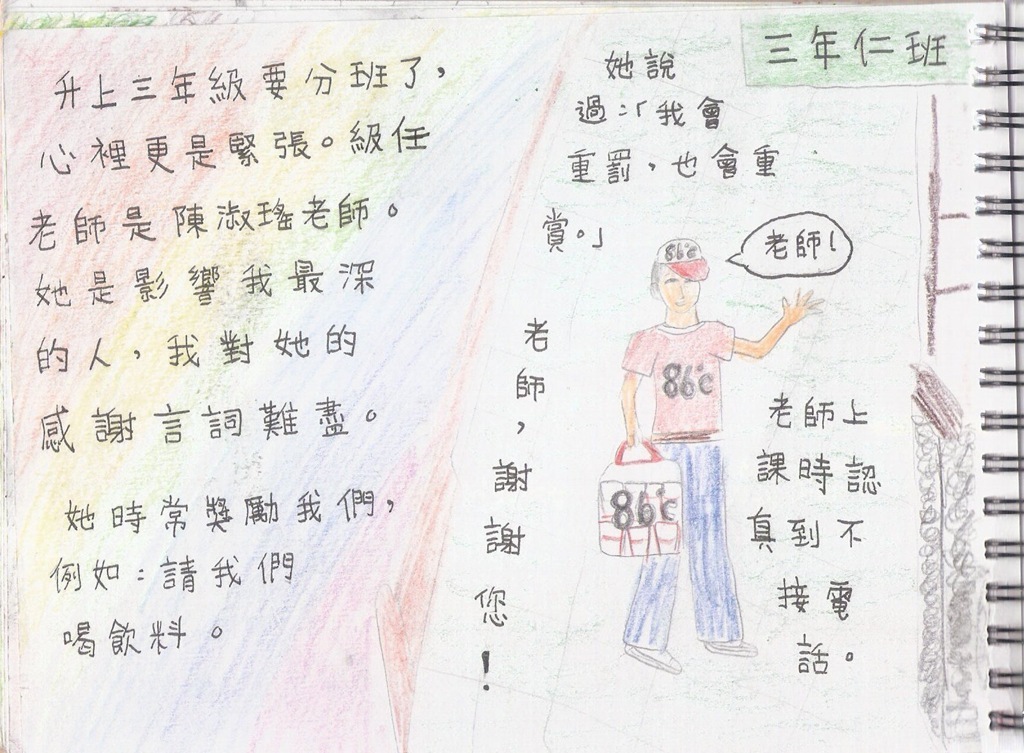 三年仁班
升上三年級要分班了，
心裡更是緊張。級任
老師是陳淑瑤老師。
她是影響我最深
的人，我對她的
感謝言詞難盡。
她時常獎勵我們，
例如：請我們
喝飲料。
她說
過：「我會
重罰，也會重
賞。」
老師，謝謝您！
老師！
86℃
86℃
86℃
老師上
課時認
真到不
接電
話。